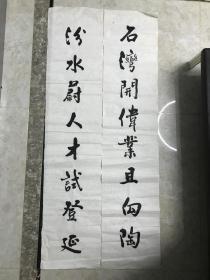 石灣開偉業且向陶
汾水蔚人才試登延